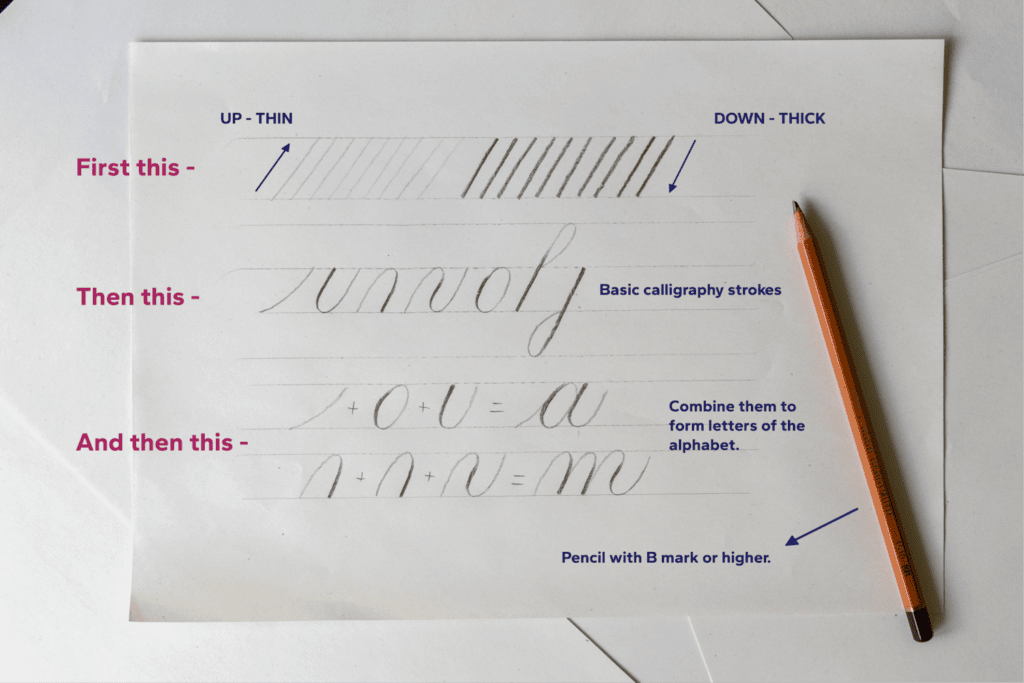 UP - THIN
DOWN - THICK
First this -
Then this -
Basic calligraphy strokes
+ o + = a
Combine them to
form letters of the
alphabet.
And then this -
+ + = m
Pencil with B mark or higher.